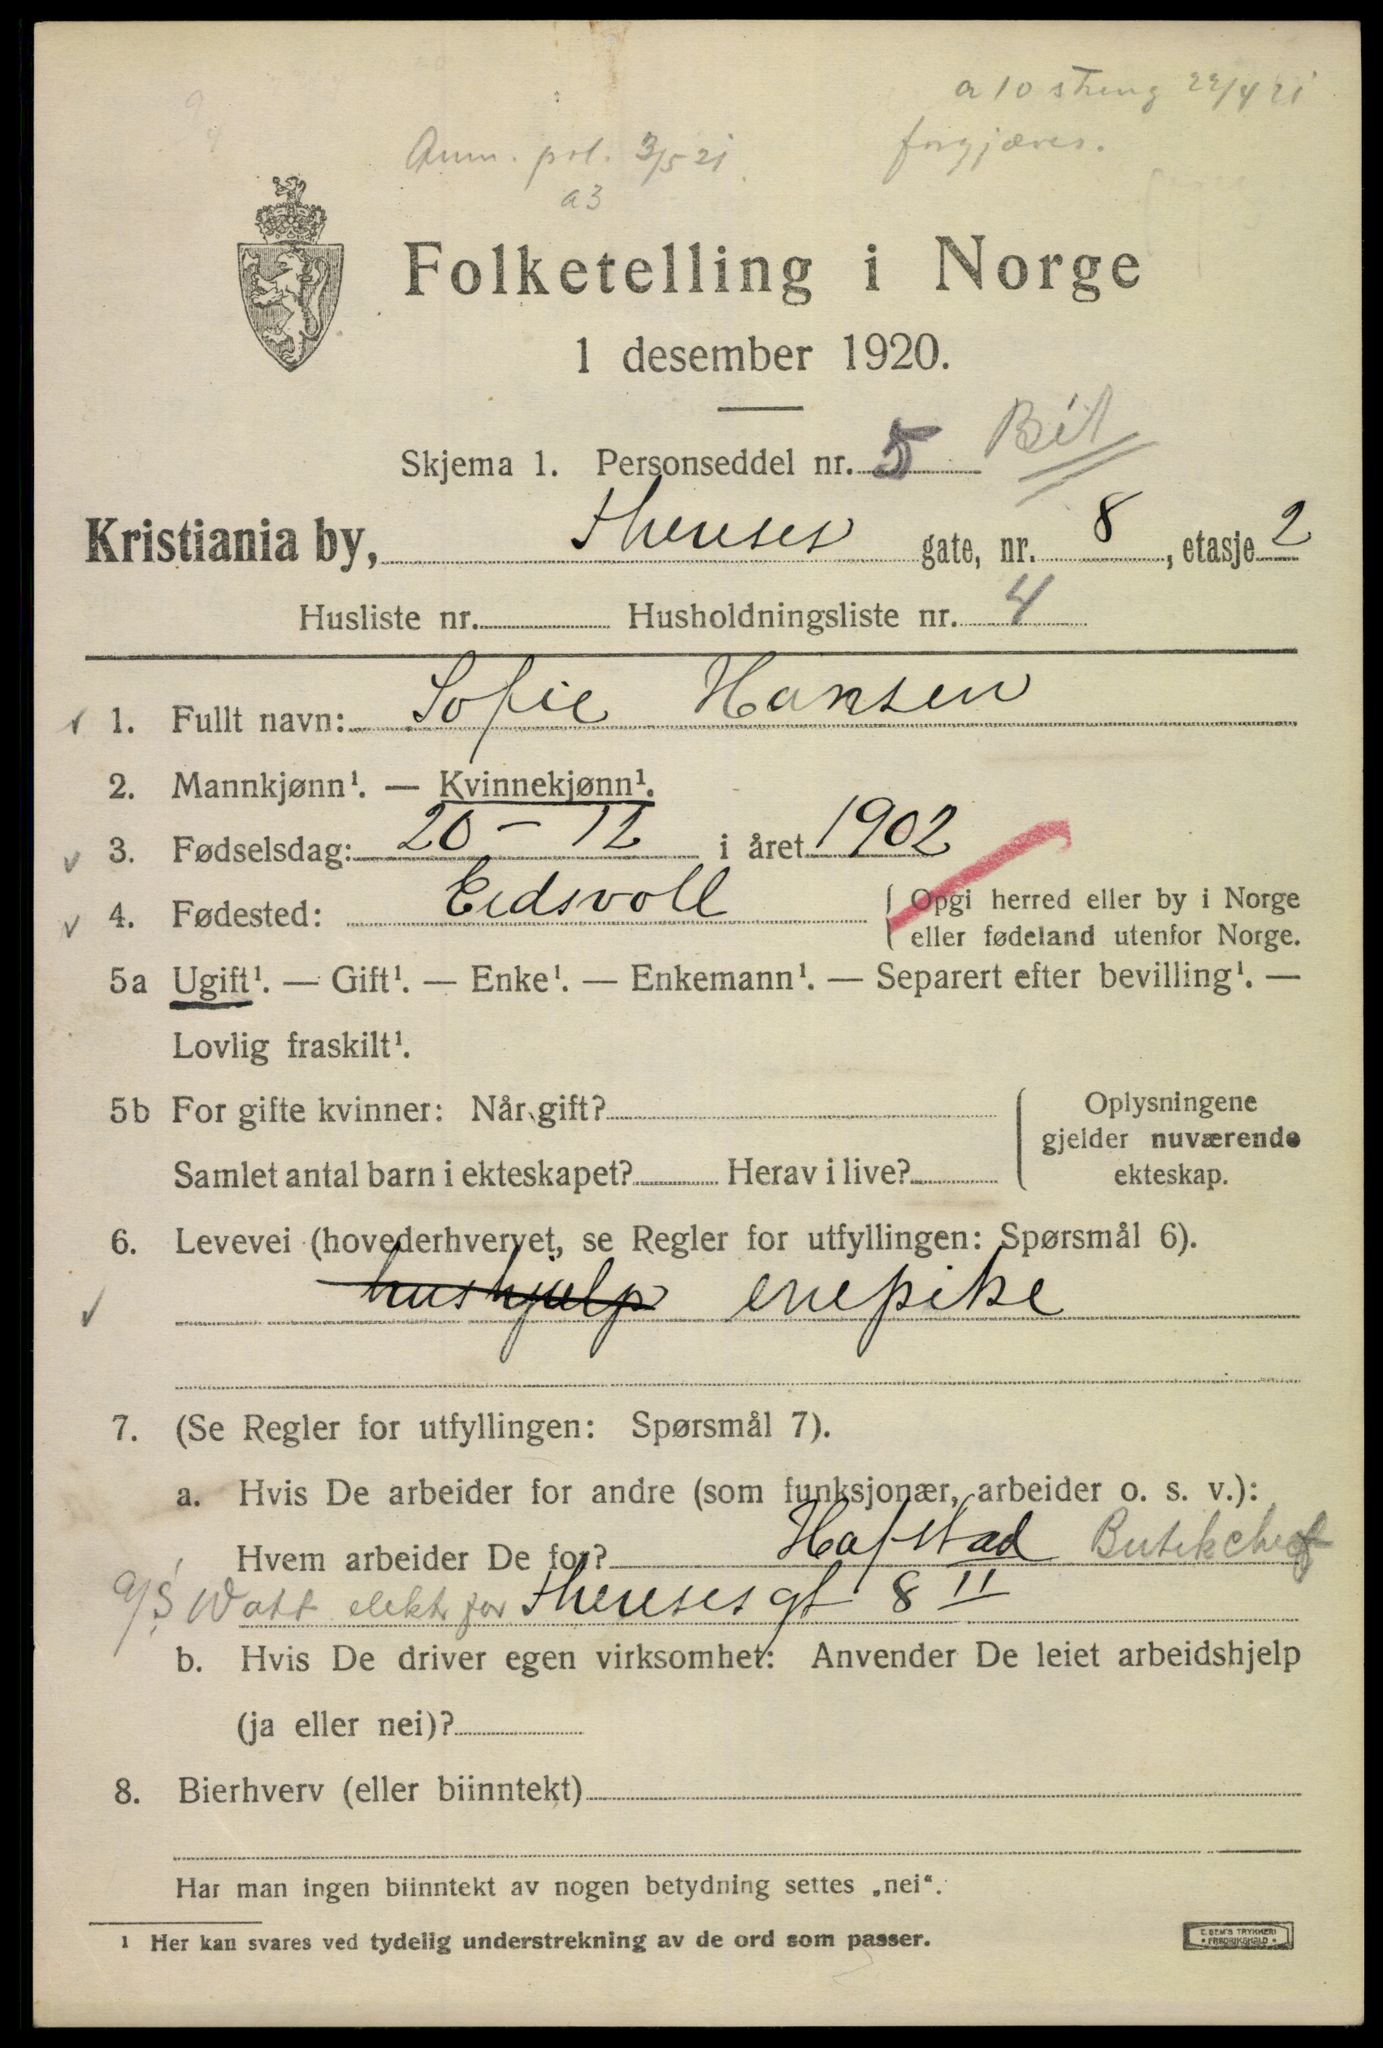 a 10 streng 22/4 21
forgjæves.
Anm. pol. 3/5 21
a3
Folketelling i Norge
1 desember 1920.
Skjema 1. Personseddel nr. 5
Kristiania by, Thereses gate, nr. 8, etasje 2
Husliste nr. Husholdningsliste nr. 4
1. Fullt navn: Sofie Hansen
2. Mannkjønn¹. — Kvinnekjønn¹.
3. Fødselsdag: 20 – 12 i året 1902
4. Fødested: Eidsvoll { Opgi herred eller by i Norge
eller fødeland utenfor Norge.
5a Ugift¹. — Gift¹. — Enke¹. — Enkemann¹. — Separert efter bevilling¹. —
Lovlig fraskilt¹.
5b For gifte kvinner: Når gift? { Oplysningene
gjelder nuværende
Samlet antal barn i ekteskapet? Herav i live? ekteskap.
6. Levevei (hovederhvervet, se Regler for utfyllingen: Spørsmål 6).
hushjelp enepike
7. (Se Regler for utfyllingen: Spørsmål 7).
a. Hvis De arbeider for andre (som funksjonær, arbeider o. s. v.):
Hvem arbeider De for? Hafstad Butikchef
A/S Watt elekt. for Thereses gt 8 II
b. Hvis De driver egen virksomhet: Anvender De leiet arbeidshjelp
(ja eller nei)?
8. Bierhverv (eller biinntekt)
Har man ingen biinntekt av nogen betydning settes „nei“.
¹ Her kan svares ved tydelig understrekning av de ord som passer.
E. SEM'S TRYKKERI
FREDRIKSHALD